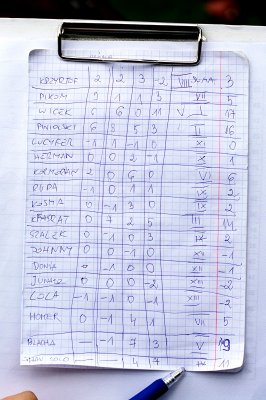 2 2 3 -2 VIII SUMA 3
PIKOM 2 1 1 3 VII 5
WICEK 6 6 0 11 V I 17
6 8 5 3 II 16
LUCYFER -1 1 -1 0 XI 0
HERMAN 0 0 2 -1 X 1
2 0 6 0 VI 6
RUPA -1 0 1 1 IX 2
KOSMA 0 -1 3 0 IX 2
0 7 2 5 III 14
SZALEK 0 -1 0 3 IX 2
JOHNNY 0 0 -1 0 XII -1
DONIA 0 -1 0 0 XII -1
0 0 0 -2 XIII -2
LOLA -1 -1 0 -1 XIII
HOKER 0 -1 4 1 VII 5
BLACHA — -1 7 3 V 9
SOLO — — 4 7 IV 11